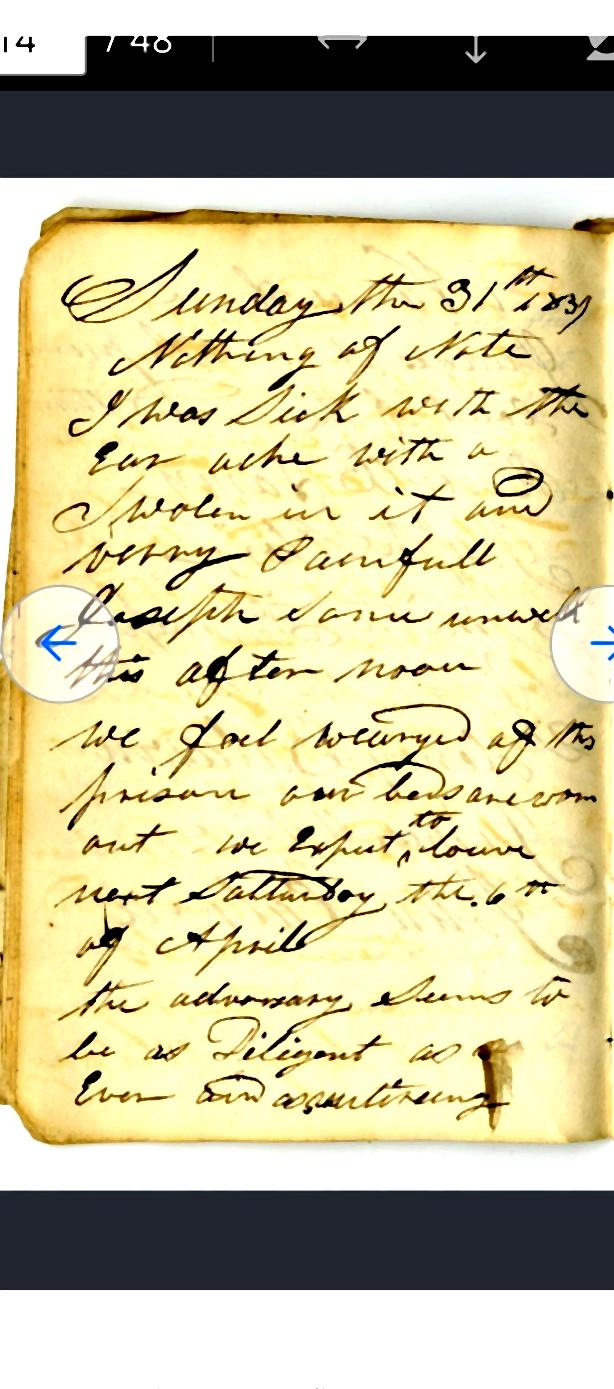 14 / 48
Sunday the 31th 183
Nothing of Note
I was Sick with the
Ear ache with a
Swolen in it and
verry Painfull
Joseph Some unwell
this after noon
we feel wearyed of this
prison our beds are worn
out we Expect to leave
next Satturday the 6th
of April
the adversary Seems to
be as Diligent as
Ever and